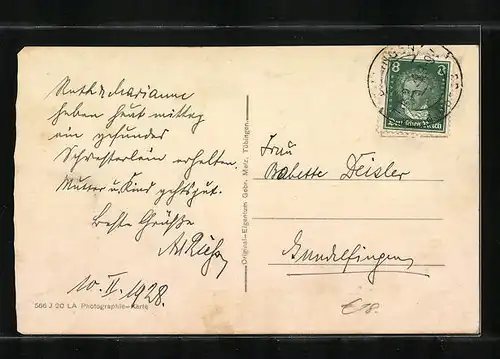 Ruth & Marianne
haben heut mittag
ein gesundes
Schwesterlein erhalten.
Mutter u. Kind gehts gut.
Beste Grüße
10. II. 1928.
566 J 20 LA Photographie-Karte
Original-Eigentum Gebr. Metz, Tübingen
8
Deutsches Reich
Frau
Babette Deisler
Gundelfingen